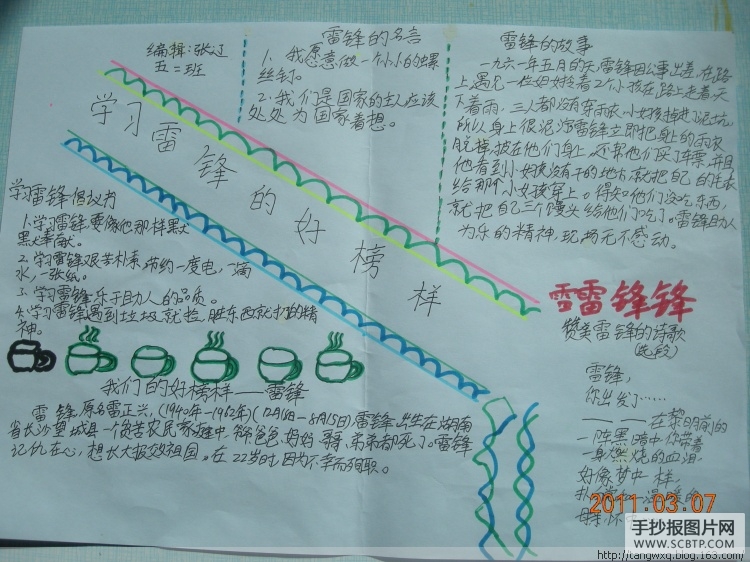 编辑:张辽
五二班
雷锋的名言
1、我愿意做一个小小的螺
丝钉。
2、我们是国家的主人应该
处处为国家着想。
雷锋的故事
一九六一年五月的一天,雷锋因公事出差,在路
上遇见一位妇女拎着2个小孩在路上走着,天
下着雨,三人都没有穿雨衣,小女孩掉进了泥坑,
所以身上很泥泞雷锋立即把身上的雨衣
脱掉,披在他们身上,还帮他们买了车票,并且
他看到小女孩没有干的地方,就把自己的毛衣
给那个小女孩穿上。得知他们没吃东西,
就把自己三个馒头给他们吃了。雷锋助人
为乐的精神,现场无不感动。
学习雷锋的好榜样
学习雷锋倡议书
1.学习雷锋要像他那样默
默奉献。
2.学习雷锋艰苦朴素,节约一度电,一滴
水,一张纸。
3、学习雷锋乐于助人的品质。
4.学习雷锋遇到垃圾就捡,脏东西就扫的精
神。
雷雷锋锋
赞美雷锋的诗歌
(选段)
雷锋,
你出发了……
——在黎明前的
一阵黑暗中你带着
一身燃烧的血泪,
好像梦中一样,
扑
母亲
我们的好榜样——雷锋
雷锋,原名雷正兴,(1940年-1962年)(12月18日-8月15日)雷锋出生在湖南
省长沙望城县一个贫苦农民家庭中,爷爷、爸爸、妈妈、哥哥、弟弟都死了。雷锋
记仇在心,想长大报效祖国。在22岁时,因为不幸而殉职。
2011.03.07
手抄报图片网
WWW.SCBTP.COM
http://tangwxq.blog.163.com/